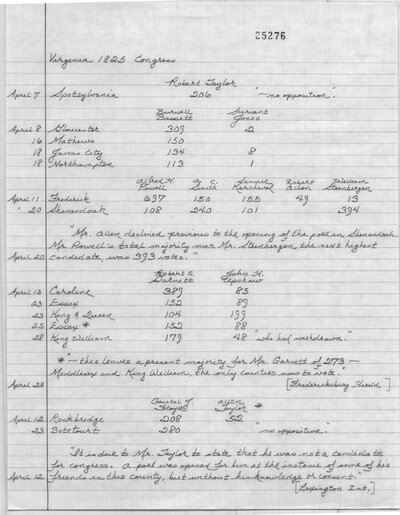 25276
Virginia 1825 Congress
Robert Taylor
April 7 Spotsylvania 206 "~ no opposition".
Burwell Bassett Servant Jones
April 8 Gloucester 309 2
16 Mathews 150
18 James City 134 8
18 Northampton 113 1
Alfred H. Powell A. C. Smith Samuel Kercheval Robert Allen William Steenbergen
April 11 Frederick 697 150 155 49 13
" 20 Shenandoah 108 240 101 394
"Mr. Allen declined previous to the opening of the poll in Shenandoah.
Mr. Powell's total majority over Mr. Steenbergen, the next highest
April 20 candidate, was 393 votes."
Robert S. Garnett John H. Upshaw
April 13 Caroline 389 85
23 Essex 152 89
23 King & Queen 104 199
25 Essex * 152 88
28 King William 179 48 "who had withdrawn."
*"~ this leaves a present majority for Mr. Garnett of 273 ~
Middlesex and King William, the only counties now to vote."
April 25 [Fredericksburg Herald]
General J. Floyd Allen Taylor *
April 12 Rockbridge 208 52
23 Botetourt 280 "no opposition".
It is due to Mr. Taylor to state that he was not a candidate
for congress. A poll was opened for him at the instance of some of his
April 12 friends in this county, but without his knowledge or consent."
[Lexington Int.]